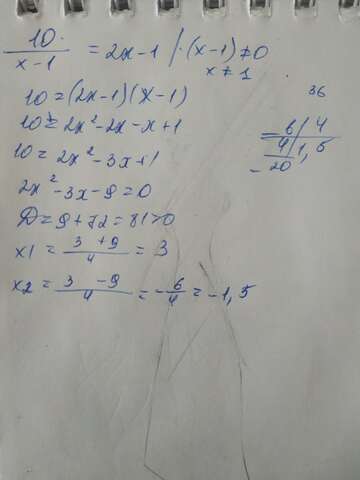 10/(x-1) = 2x-1 / ·(x-1) ≠ 0
x ≠ 1
10 = (2x-1)(x-1)
10 = 2x² - 2x - x + 1
10 = 2x² - 3x + 1
2x² - 3x - 9 = 0
D = 9 + 72 = 81 > 0
x1 = (3 + 9)/4 = 3
x2 = (3 - 9)/4 = -6/4 = -1,5
36
- 6 / 4
4 / 1,5
- 20